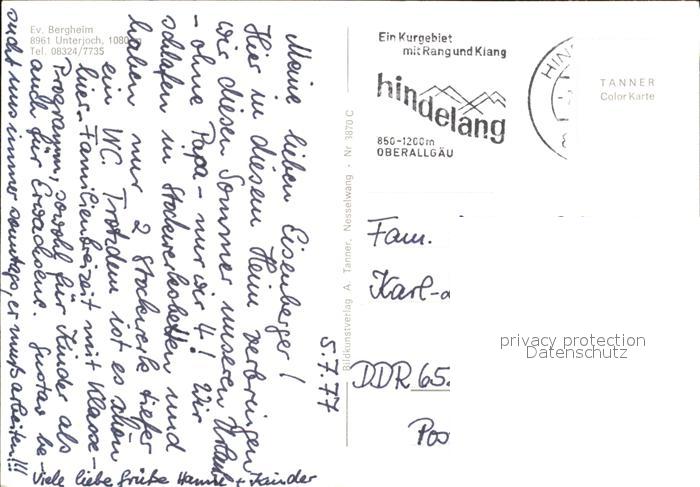 Ev. Bergheim
8961 Unterjoch, 1080
Tel. 08324/7735
5.7.77
Meine lieben Eisenberger!
Hier in diesem Heim verbringen
wir diesen Sommer unseren Urlaub
- ohne Papa - nur wir 4! Wir
schlafen in Stockwerksbetten und
haben nur 2 Stockwerke tiefer
ein WC. Trotzdem ist es schön
hier - Familienfreizeit mit Klasse-
Programm, sowohl für Kinder als
auch für Erwachsene. Gustav be-
sucht uns immer sonntags, er muß arbeiten!!!
Viele liebe Grüße Hanne + Kinder
Bildkunstverlag A. Tanner, Nesselwang - Nr 3870 C
Ein Kurgebiet
mit Rang und Klang
hindelang
850-1200m
OBERALLGÄU
HIN
TANNER
Color Karte
Fam.
Karl-
DDR 65.
Pos
privacy protection
Datenschutz